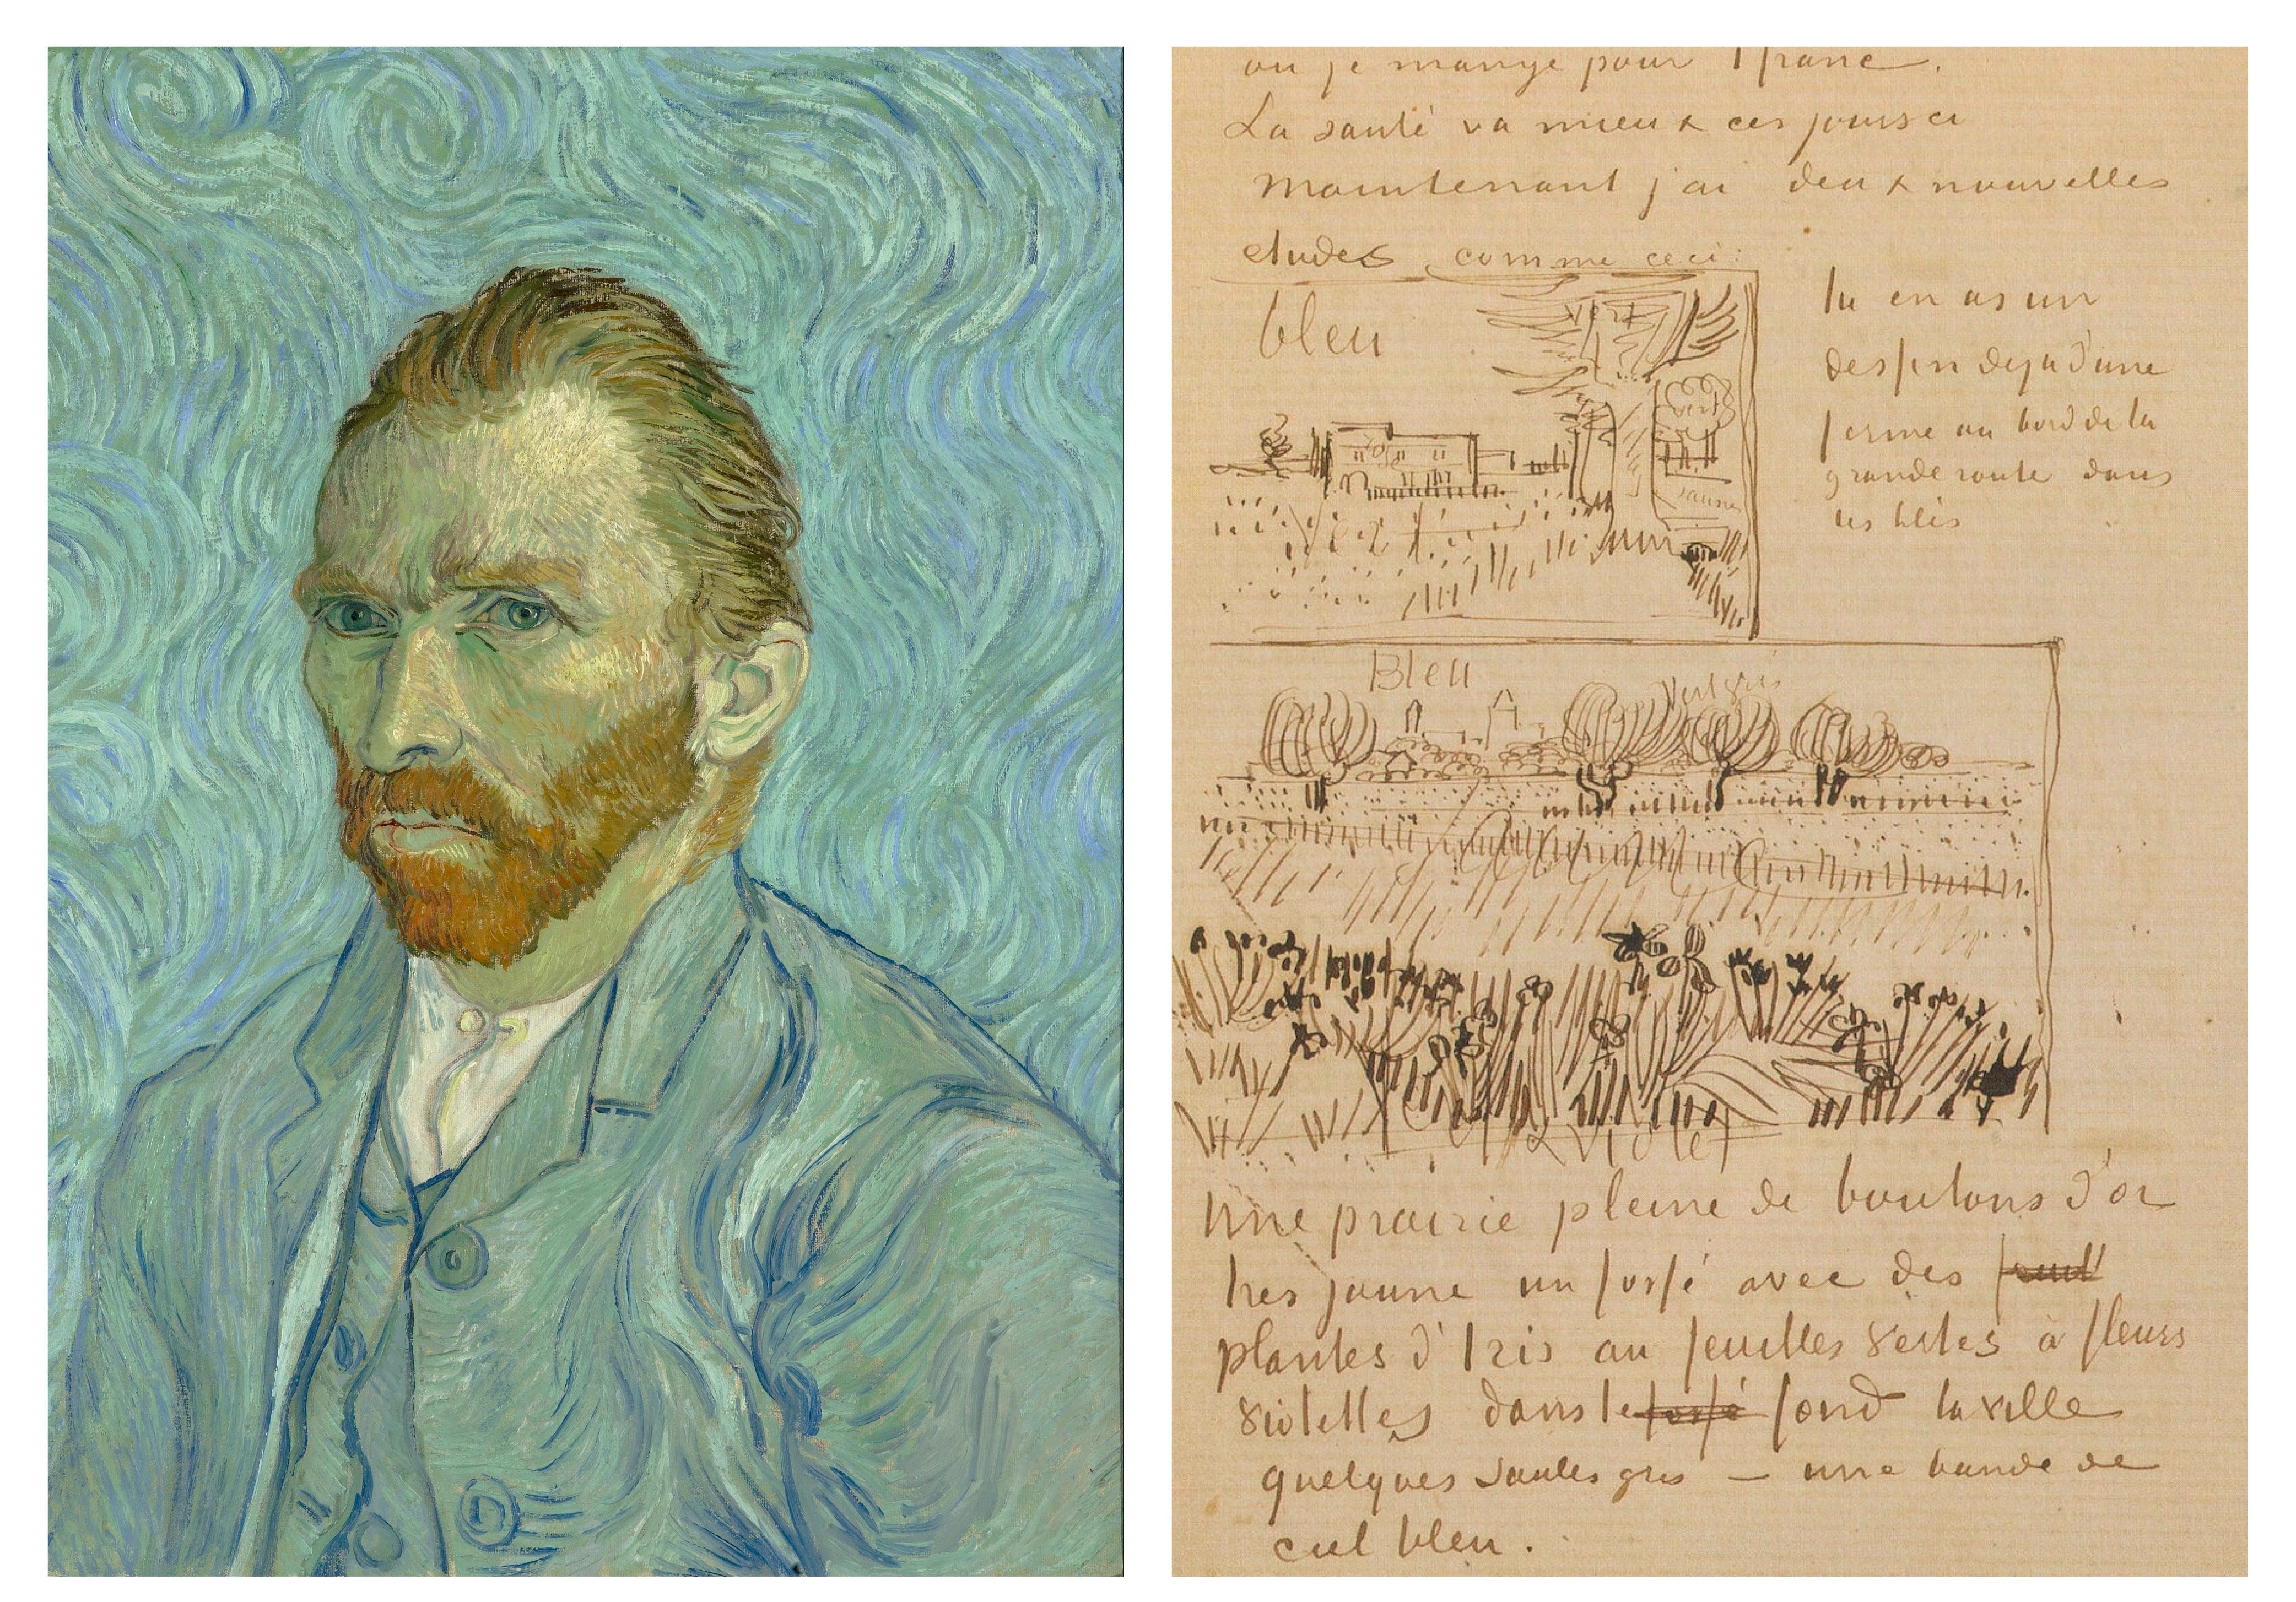 ou je mange pour 1 franc.
La santé va mieux ces jours ci
maintenant j'ai deux nouvelles
etudes comme ceci:
bleu
vert
vert
rose
jaune
tu en as un
dessin deja d'une
ferme au bord de la
grande route dans
les blés
Bleu
vert gris
& violet
Une prairie pleine de boutons d'or
tres jaune un fossé avec des
plantes d'Iris au feuilles vertes à fleurs
violettes dans le fossé fond la ville
quelques saules gris — une bande de
ciel bleu.